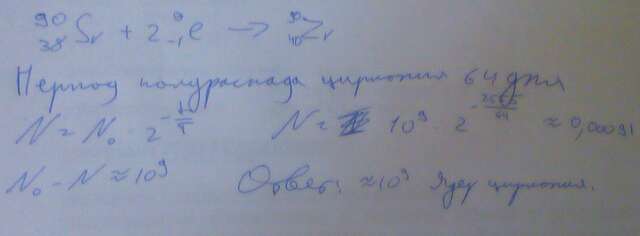 ⁹⁰₃₈Sr + 2 ⁰₋₁e → ⁹⁰₄₀Zr
Период полураспада циркония 64 дня
N = N₀ · 2^(-t/T) N = 10⁹ · 2^(-2555/64) ≈ 0,00091
N₀ - N ≈ 10⁹ Ответ: ≈10⁹ ядер циркония.